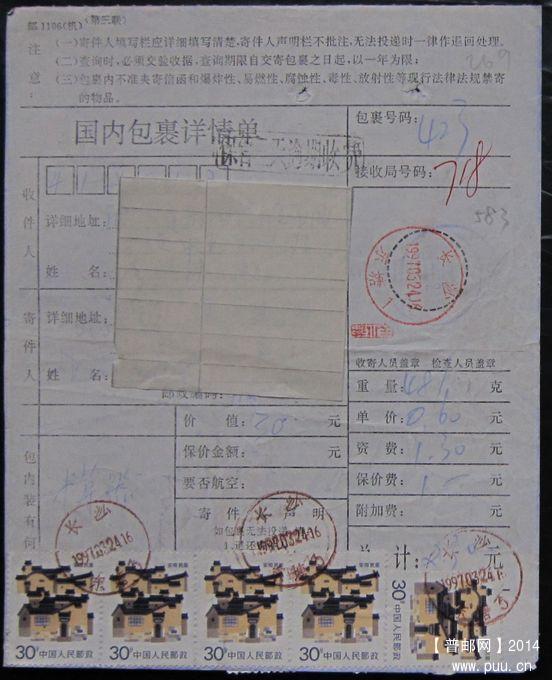 邮1106(机) (第三联)
注意：
(一)寄件人填写栏应详细填写清楚，寄件人声明栏不批注，无法投递时一律作退回处理。
(二)查询时，必须交验收据，查询期限自交寄包裹之日起，以一年为限；
(三)包裹内不准夹寄信函和爆炸性、易燃性、腐蚀性、毒性、放射性等现行法律法规禁寄的物品。
269
国内包裹详情单
包裹号码：423
接收局号码：718
583
收件人
详细地址：
姓 名：
1997.03.24.16
长沙
寄件人
详细地址：
姓 名：
邮政编码：
收寄人员盖章 检查人员盖章
重 量： 克
价 值：20 元
单 价：0.60 元
保价金额： 元
资 费：1.30 元
要否航空：
保价费：1 元
附加费： 元
包内装有何
寄件人声明
如包裹无法投递
1.退还
总 计： 元
长沙
1997.03.24.16
长沙
1997.03.24.16
长沙
1997.03.24.16
安徽民居 安徽民居 安徽民居 安徽民居
30分 中国人民邮政 30分 中国人民邮政 30分 中国人民邮政 30分 中国人民邮政
30分 中国人民邮政
【普邮网】2014
www.puu.cn